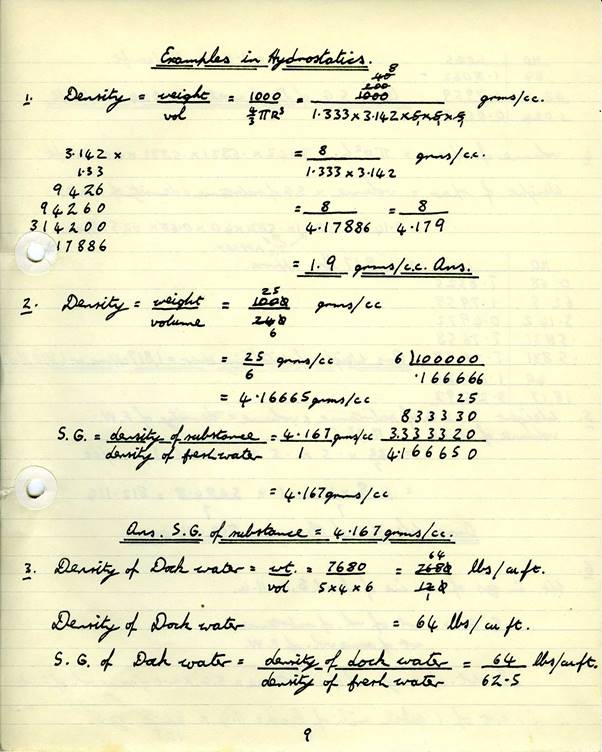 Examples in Hydrostatics.
1. Density = weight/vol = 1000/(4/3 πR³) = 1000/(1.333 × 3.142 × 5 × 5 × 5) grms/cc.
8
40
200
3.142 ×
1.33
9426
94260
314200
417886
= 8/(1.333 × 3.142) grms/cc.
= 8/4.17886 = 8/4.179
= 1.9 grms/c.c. Ans.
2. Density = weight/volume = 1000/240 grms/cc
25
6
= 25/6 grms/cc
6 | 100000
.166666
25
833330
3333320
4.166650
= 4.16665 grms/cc
S.G. = density of substance/density of fresh water = 4.167 grms/cc/1
= 4.167 grms/cc
Ans. S.G. of substance = 4.167 grms/cc.
3. Density of Dock water = wt./vol = 7680/(5 × 4 × 6) = 7680/120 lbs/cu ft.
64
1
Density of Dock water = 64 lbs/cu ft.
S.G. of Dock water = density of dock water/density of fresh water = 64/62.5 lbs/cu ft.
9